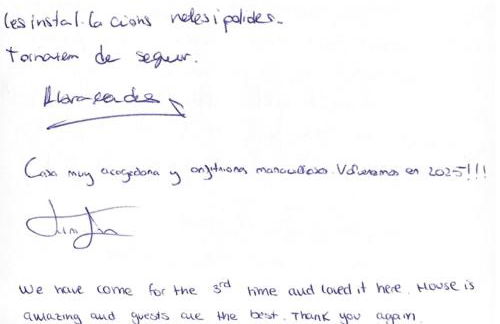 les instal·lacions netes i polides.
Tornarem de segur.
Casa muy acogedora y anfitriona maravillosa. Volveremos en 2025!!!
We have come for the 3rd time and loved it here. House is
amazing and guests are the best. Thank you again.